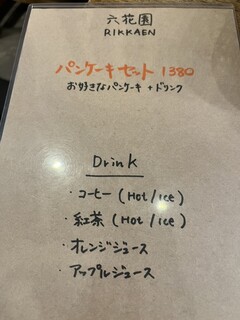 六花園
RIKKAEN
パンケーキセット 1380
お好きなパンケーキ + ドリンク
Drink
・コーヒー (Hot/ice)
・紅茶 (Hot/ice)
・オレンジジュース
・アップルジュース